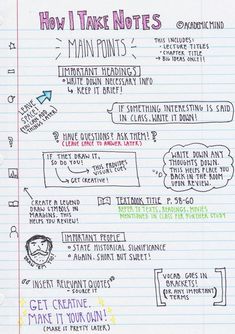 How I Take Notes
©ACADEMICMIND
MAIN POINTS
THIS INCLUDES:
• LECTURE TITLES
• CHAPTER TITLE
→ BIG IDEAS ONLY!!
IMPORTANT HEADINGS
• WRITE DOWN NECESSARY INFO
↳ KEEP IT BRIEF!
LEAVE
SPACE TO
ADD
THINGS
LATER!
IF SOMETHING INTERESTING IS SAID
IN CLASS, WRITE IT DOWN!
? HAVE QUESTIONS? ASK THEM!
(LEAVE SPACE TO ANSWER LATER)
IF THEY DRAW IT,
SO DO YOU!
THIS PROVIDES
VISUAL CUES
GET CREATIVE!
WRITE DOWN ANY
THOUGHTS DOWN.
THIS HELPS PLACE
YOU BACK IN THE ROOM
UPON REVIEW.
CREATE A LEGEND
DRAW SYMBOLS IN
MARGINS. THIS
HELPS YOU REVIEW!
TEXTBOOK TITLE P. 58-60
REFER TO TEXTS, READINGS, MOVIES
MENTIONED IN CLASS FOR FURTHER STUDY
IMPORTANT PEOPLE
• STATE HISTORICAL SIGNIFICANCE
• AGAIN, SHORT BUT SWEET!
"INSERT RELEVANT QUOTES"
- SOURCE IT
VOCAB GOES IN
BRACKETS!
(OR ANY IMPORTANT)
TERMS
GET CREATIVE.
MAKE IT YOUR OWN!
(MAKE IT PRETTY LATER)